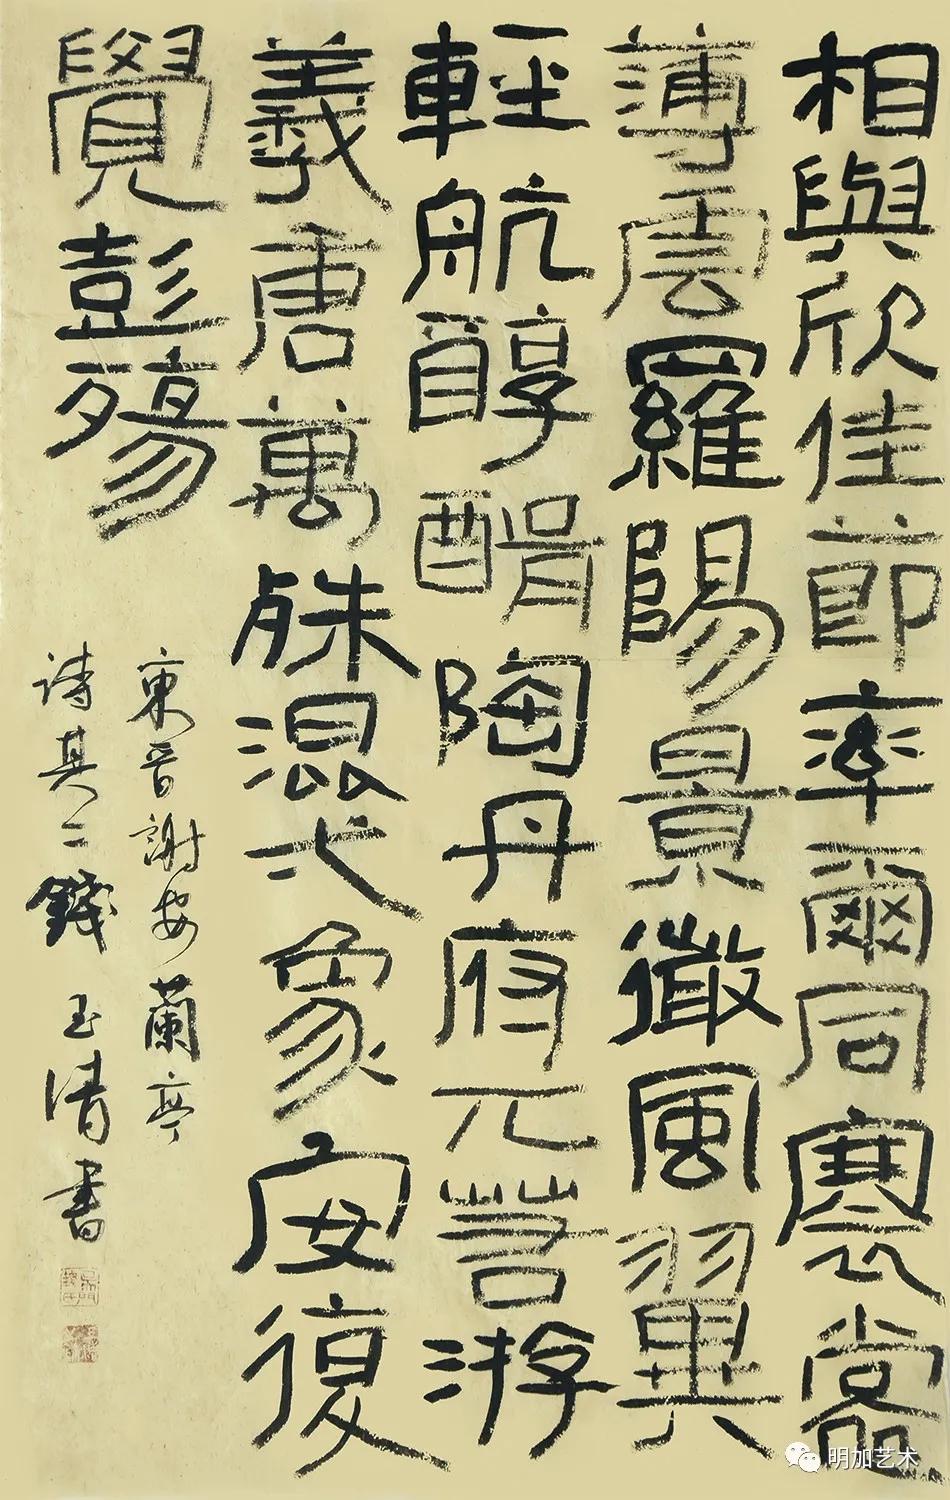 相與欣佳節率爾同褰裳
薄雲羅陽景微風翼
輕航醇醑陶丹府兀若游
羲唐萬殊混弌象安復
覺彭殤
東晋謝安蘭亭
詩其二錢玉清書
明加艺术